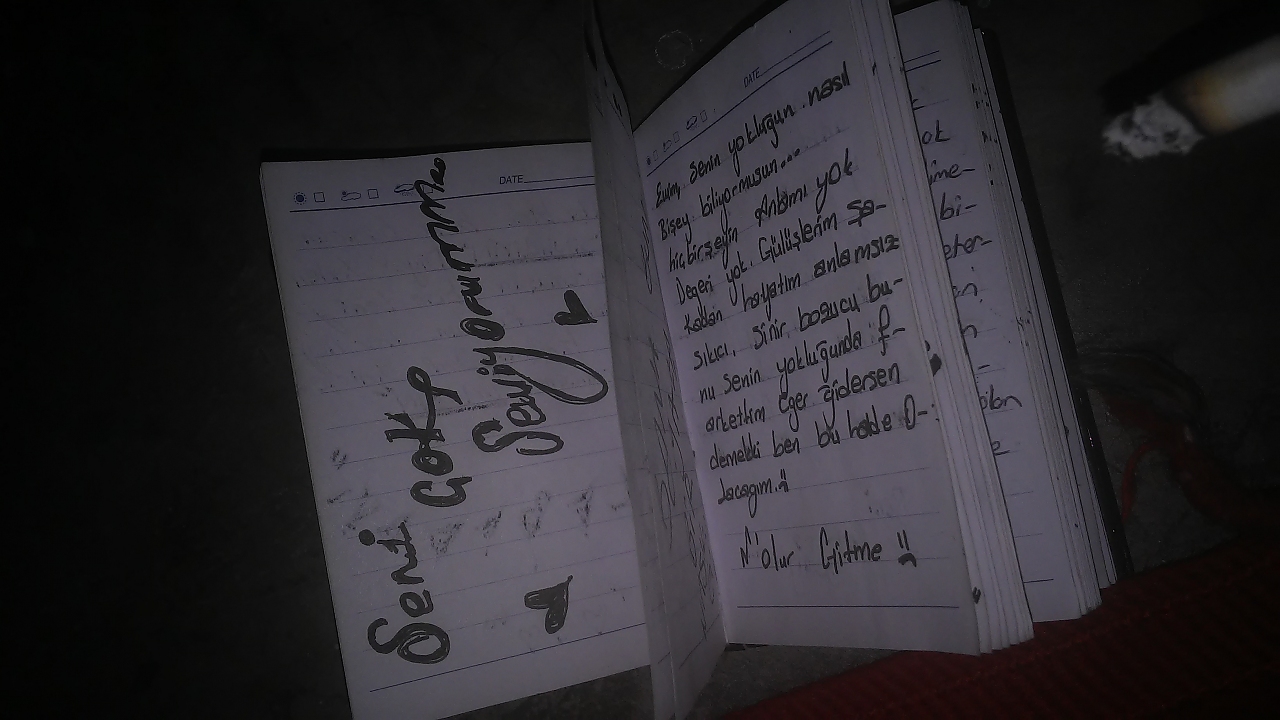 DATE
Seni çok
Seviyorummm
DATE
Evim, Senin yokluğun nasıl
Bişey biliyormusun...
hiçbirşeyin Anlamı yok
Değeri yok. Gülüşlerim Sa-
kadan hayatım anlamsız
sıkıcı, Sinir bozucu bu-
nu senin yokluğunda f-
arkettim eğer gidersen
demekki ben bu halde O-
lacağım.!!
N'olur Gitme !!
ok
ime-
bi-
eter-
olan